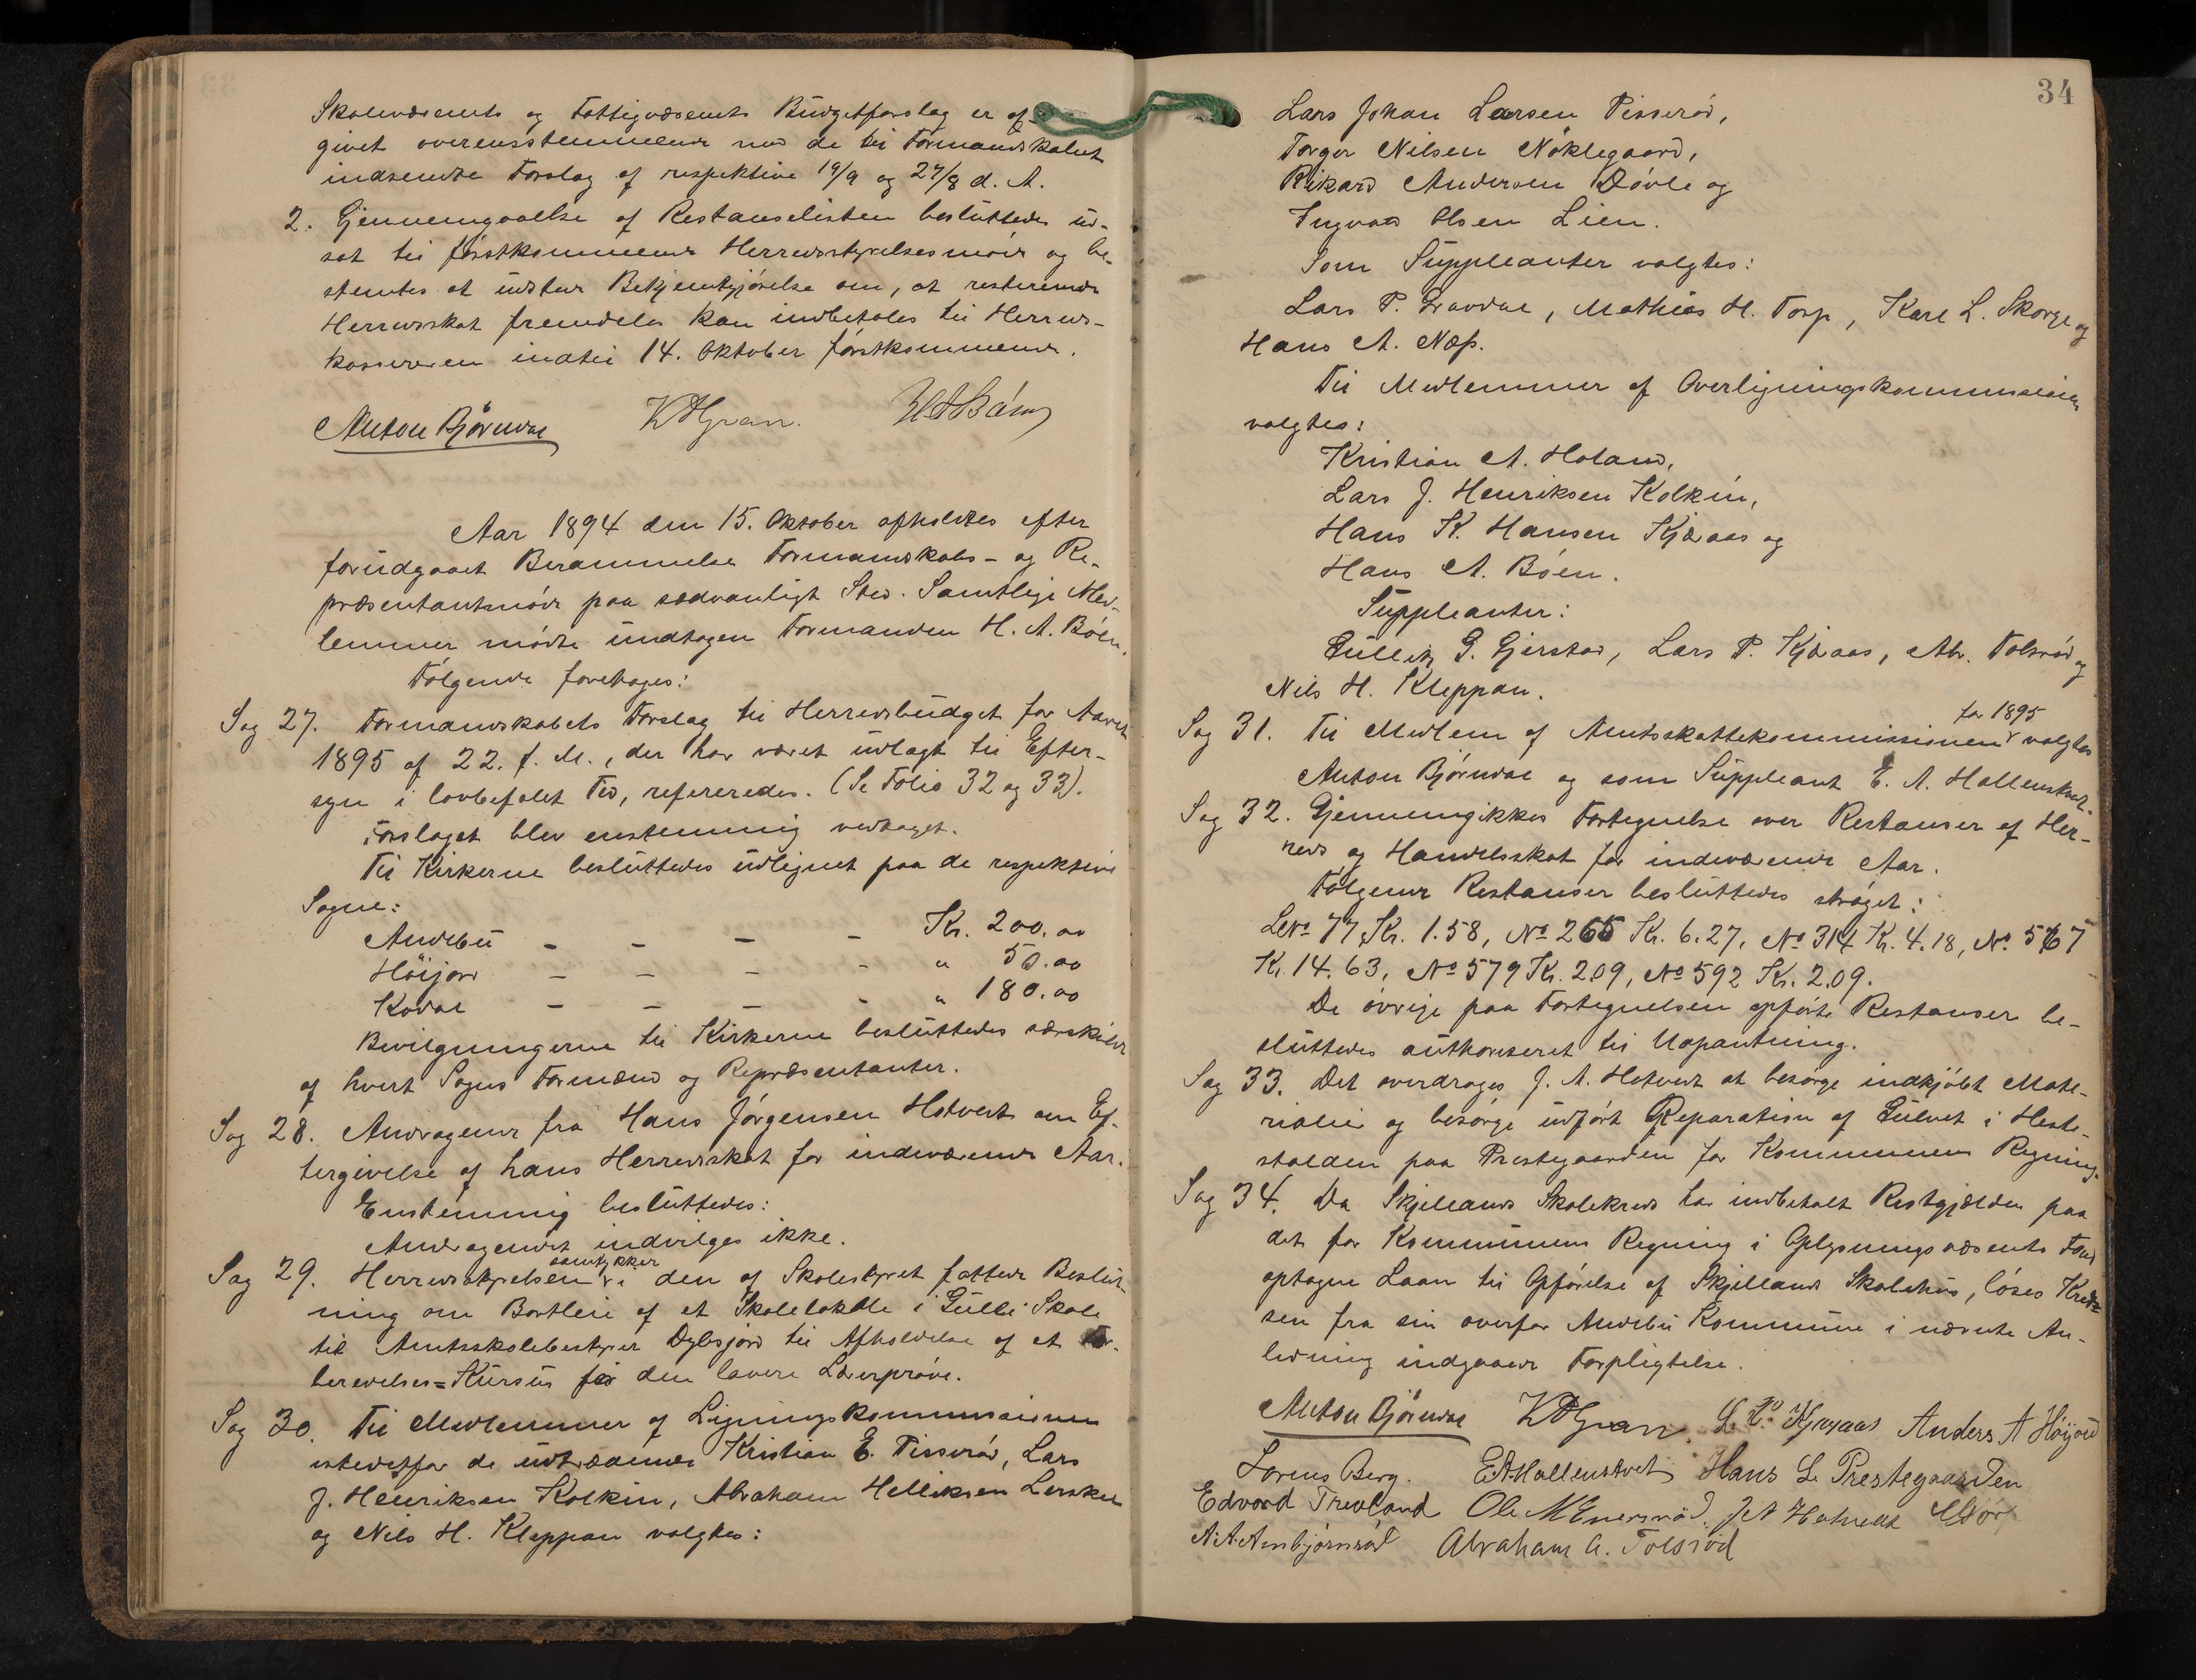 Skolevæsenets og Fattigvæsenets Budgetforslag er af-
givet overensstemmende med de til Formandskabet
indsendte Forslag af respektive 19/9 og 27/8 d. A.
2. Gjennemgaaelse af Restanselisten besluttedes ud-
sat til førstkommende Herredsstyrelsesmøde og be-
stemtes at udstede Bekjentgjørelse om, at resterende
Herredsskat fremdeles kan indbetales til Herreds-
kassereren indtil 14. Oktober førstkommende.
Anton Bjørndal K A Gran. H A Bøen
Aar 1894 den 15. Oktober afholdtes efter
forudgaaet Berammelse Formandskabs- og Re-
præsentantmøde paa sædvanligt Sted. Samtlige Med-
lemmer mødte undtagen Formanden H. A. Bøen.
Følgende foretoges:
Sag 27. Formandskabets Forslag til Herredsbudget for Aaret
1895 af 22. f. M., der har været udlagt til Efter-
syn i lovbefalet Tid, refereredes. (Se Folio 32 og 33).
Forslaget blev enstemmig vedtaget.
Til Kirkerne besluttedes udlignet paa de respektive
Sogne:
Andebu - - - - Kr. 200.00
Höijord - - - - " 50.00
Kodal - - - - " 180.00
Bevilgningerne til Kirkerne besluttedes særskildt
af hvert Sogns Formænd og Repræsentanter.
Sag 28. Andragende fra Hans Jørgensen Hotvedt om Ef-
tergivelse af hans Herredsskat for indeværende Aar.
Enstemmig besluttedes:
Andragendet indvilges ikke.
Sag 29. Herredsstyrelsen samtykker i den af Skolestyret fattede Beslut-
ning om Bortleie af et Skolelokale i Gulli Skole
til Amtsskolebestyrer Dybsjord til Afholdelse af et For-
beredelses=Kursus for den lavere Lærerprøve.
Sag 30. Til Medlemmer af Ligningskommissionen
istedetfor de udtrædende Kristian E. Tisserød, Lars
J. Henriksen Kolkin, Abraham Helliksen Lerskal
og Nils H. Kleppan valgtes:
34
Lars Johan Larsen Tisserød,
Torger Nilsen Nöklegaard,
Rikard Andersen Døvle og
Ingvald Olsen Lien.
Som Suppleanter valgtes:
Lars P. Gravdal, Mathias H. Torp, Karl L. Skorge og
Hans A. Næss.
Til Medlemmer af Overligningskommissionen
valgtes:
Kristian A. Holand,
Lars J. Henriksen Kolkin,
Hans K. Hansen Kjæraas og
Hans A. Bøen.
Suppleanter:
Gullik G. Gjerstad, Lars P. Kjæraas, Abr. Tolsrød og
Nils H. Kleppan.
Sag 31. Til Medlem af Amtsskattekommissionen for 1895 valgtes
Anton Bjørndal og som Suppleant E. A. Hallenstvedt.
Sag 32. Gjennemgikkes Fortegnelse over Restanser af Her-
reds og Handelsskat for indeværende Aar.
Følgende Restanser besluttedes strøget:
LNo 77 Kr. 1.58, No 265 Kr. 6.27, No 314 Kr. 4.18, No 567
Kr. 14.63, No 579 Kr. 2.09, No 592 Kr. 2.09.
De øvrige paa Fortegnelsen opførte Restanser be-
sluttedes authoriseret til Udpantning.
Sag 33. Det overdroges J. A. Hotvedt at besørge indkjøbt Mate-
rialier og besørge udført Reparation af Gulvet i Heste-
stalden paa Prestegaarden for Kommunens Regning.
Sag 34. Da Skjelland Skolekreds har indbetalt Restgjælden paa
det for Kommunens Regning i Oplysningsvæsenets Fond
optagne Laan til Opførelse af Skjelland Skolehus, løses Kred-
sen fra sin overfor Andebu Kommune i nævnte An-
ledning indgaaede Forpligtelse.
Anton Bjørndal K A Gran. L. P. Kjæraas Anders A Höyord
Lorens Berg. E A Hallenstvet Hans L. Prestegaarden
Edvard Trevland Ole M Enersrød. J A Hotvedt
A. A. Ambjørnrød Abraham A. Tolsrød